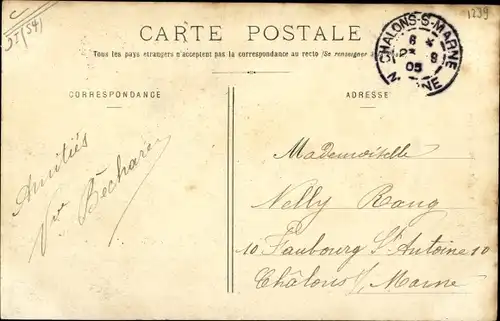 1239
51 (54)
CARTE POSTALE
Tous les pays étrangers n'acceptent pas la correspondance au recto (Se renseigner
CHALONS-S-MARNE
8
05
CORRESPONDANCE
ADRESSE
Amitiés
Mademoiselle
Nelly Roug
10 Faubourg St Antoine 10
Châlons s/ Marne